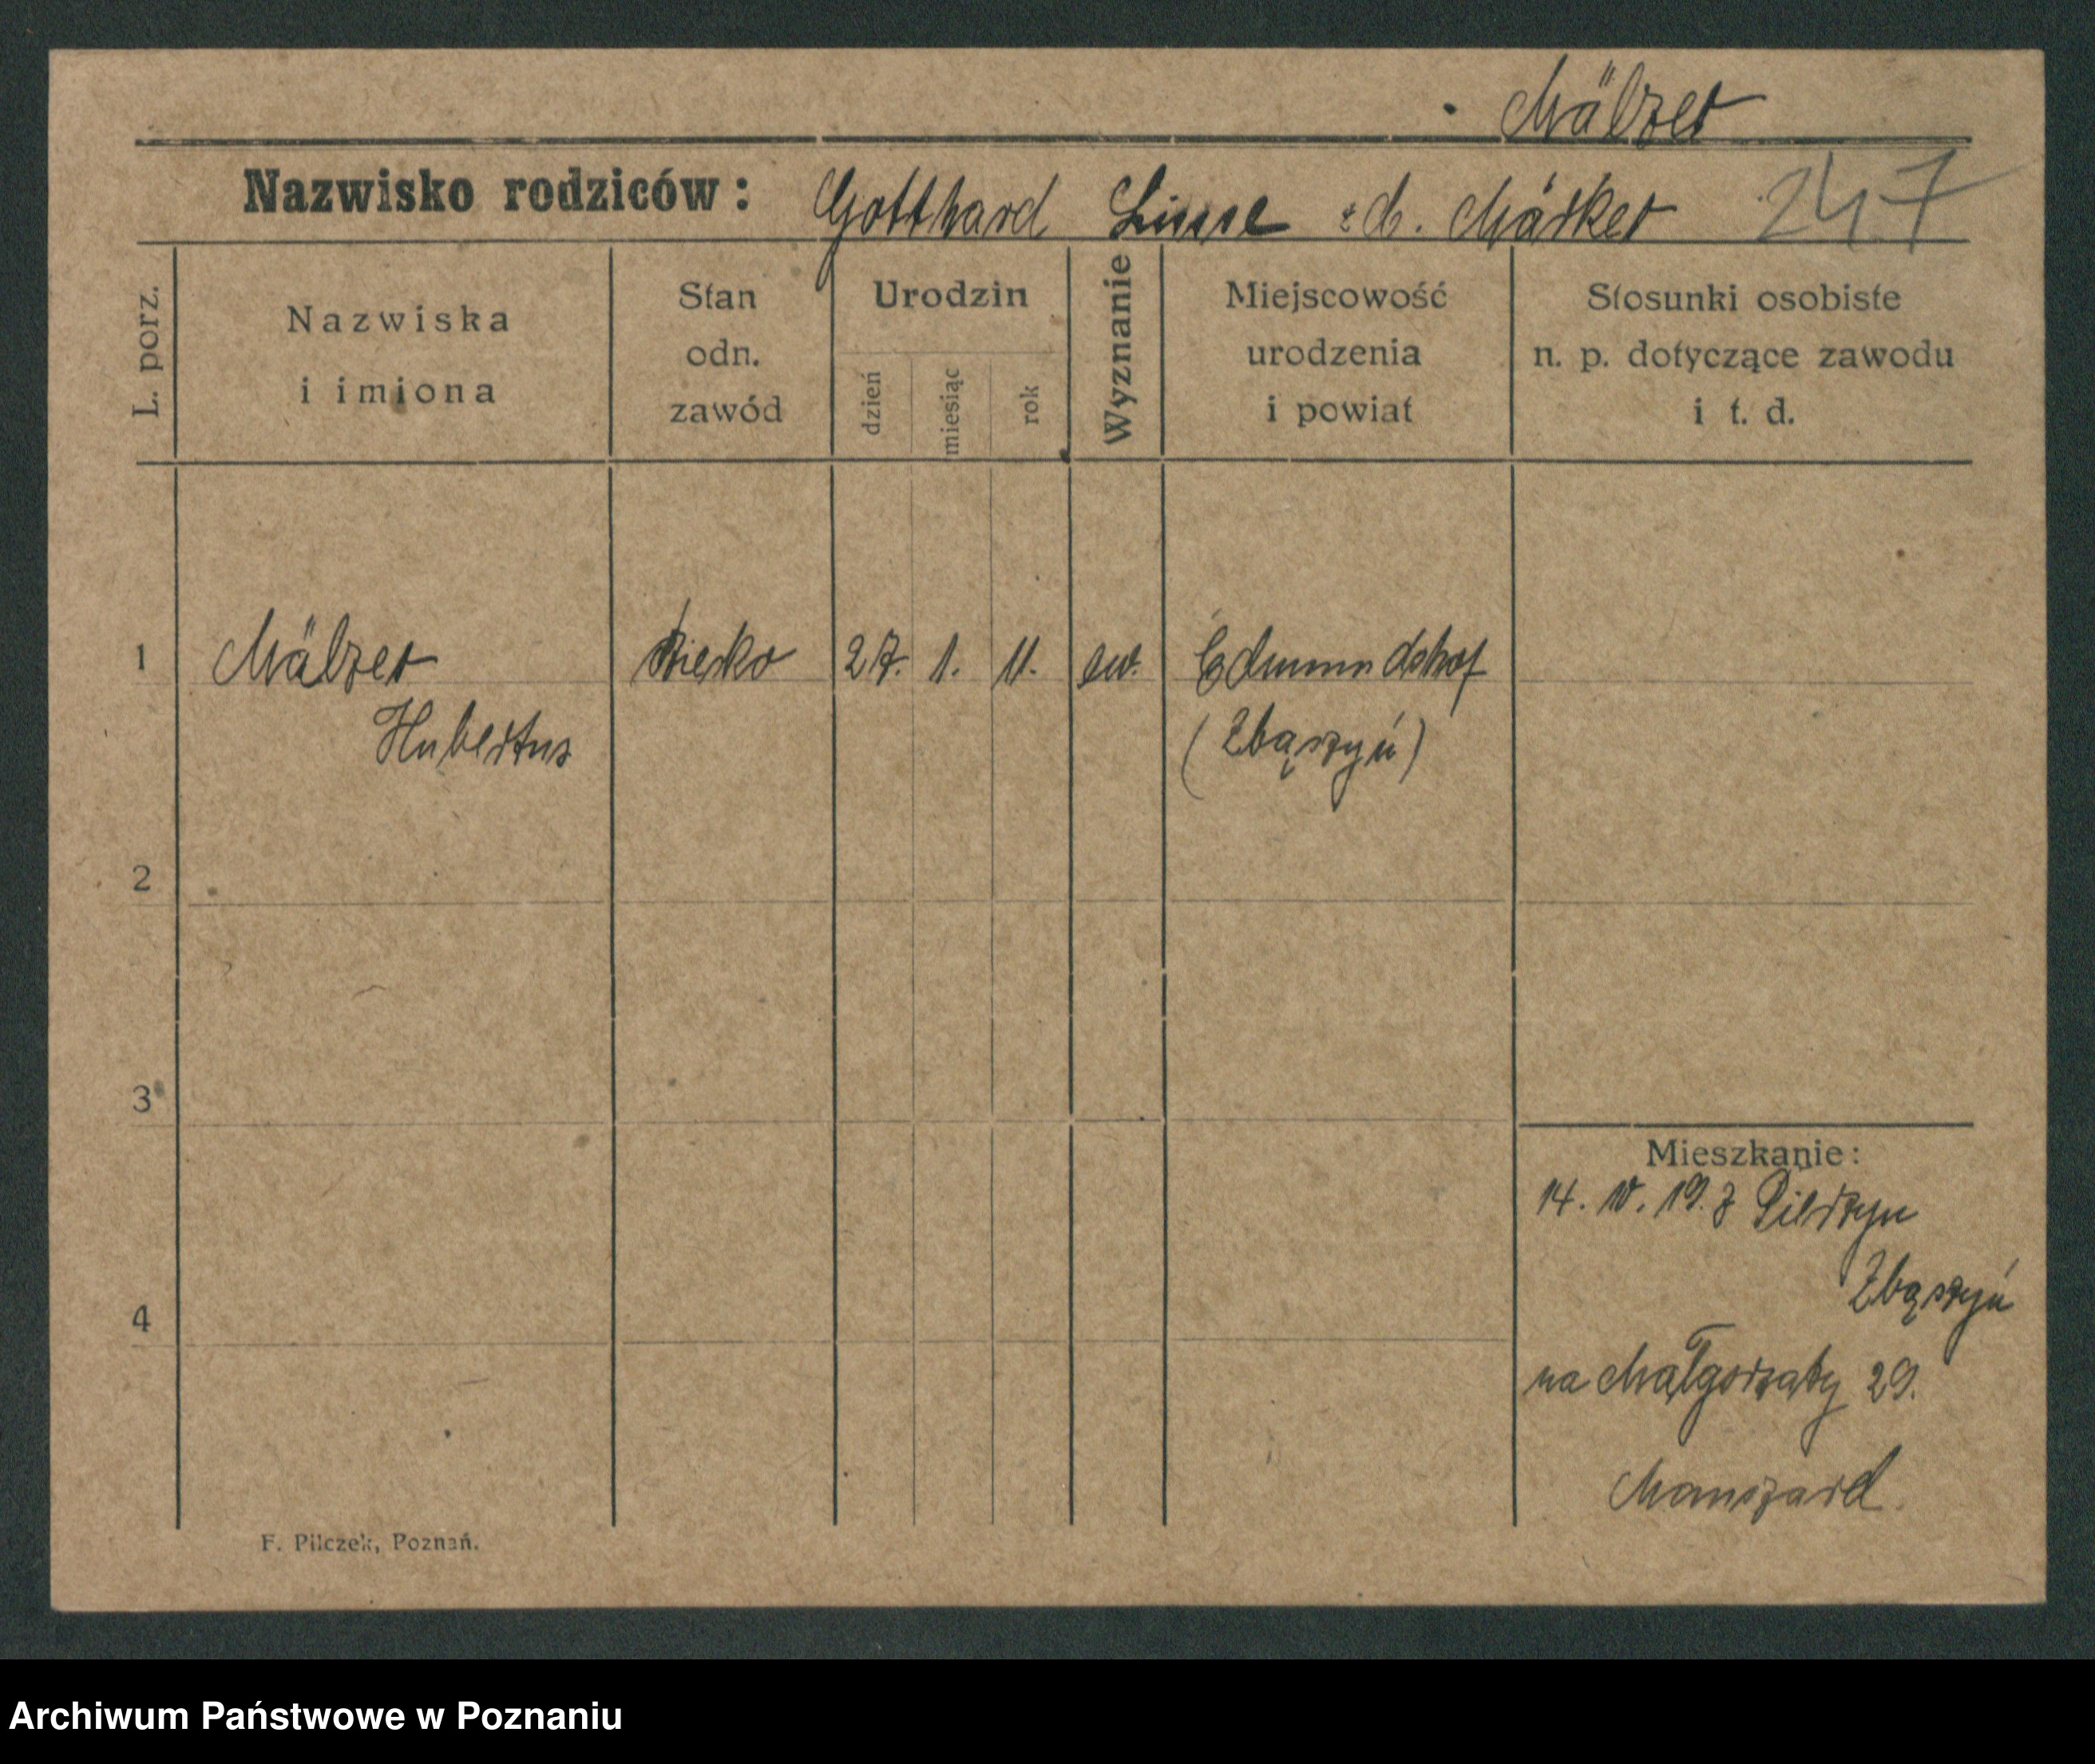 Mälzer
Nazwisko rodziców: Gotthard Luise z d. Märker 247
L. porz.
Nazwiska i imiona
Stan odn. zawód
Urodzin
dzień
miesiąc
rok
Wyznanie
Miejscowość urodzenia i powiat
Stosunki osobiste n. p. dotyczące zawodu i t. d.
1 Mälzer dziecko 27. 1. 11. ew. Edmundshof
Hubertus (Zbąszyń)
2
3
4
Mieszkanie:
14. 10. 19. z
Zbąszyń
na Małgorzaty 29.
Manszard.
F. Pilczek, Poznań.
Archiwum Państwowe w Poznaniu